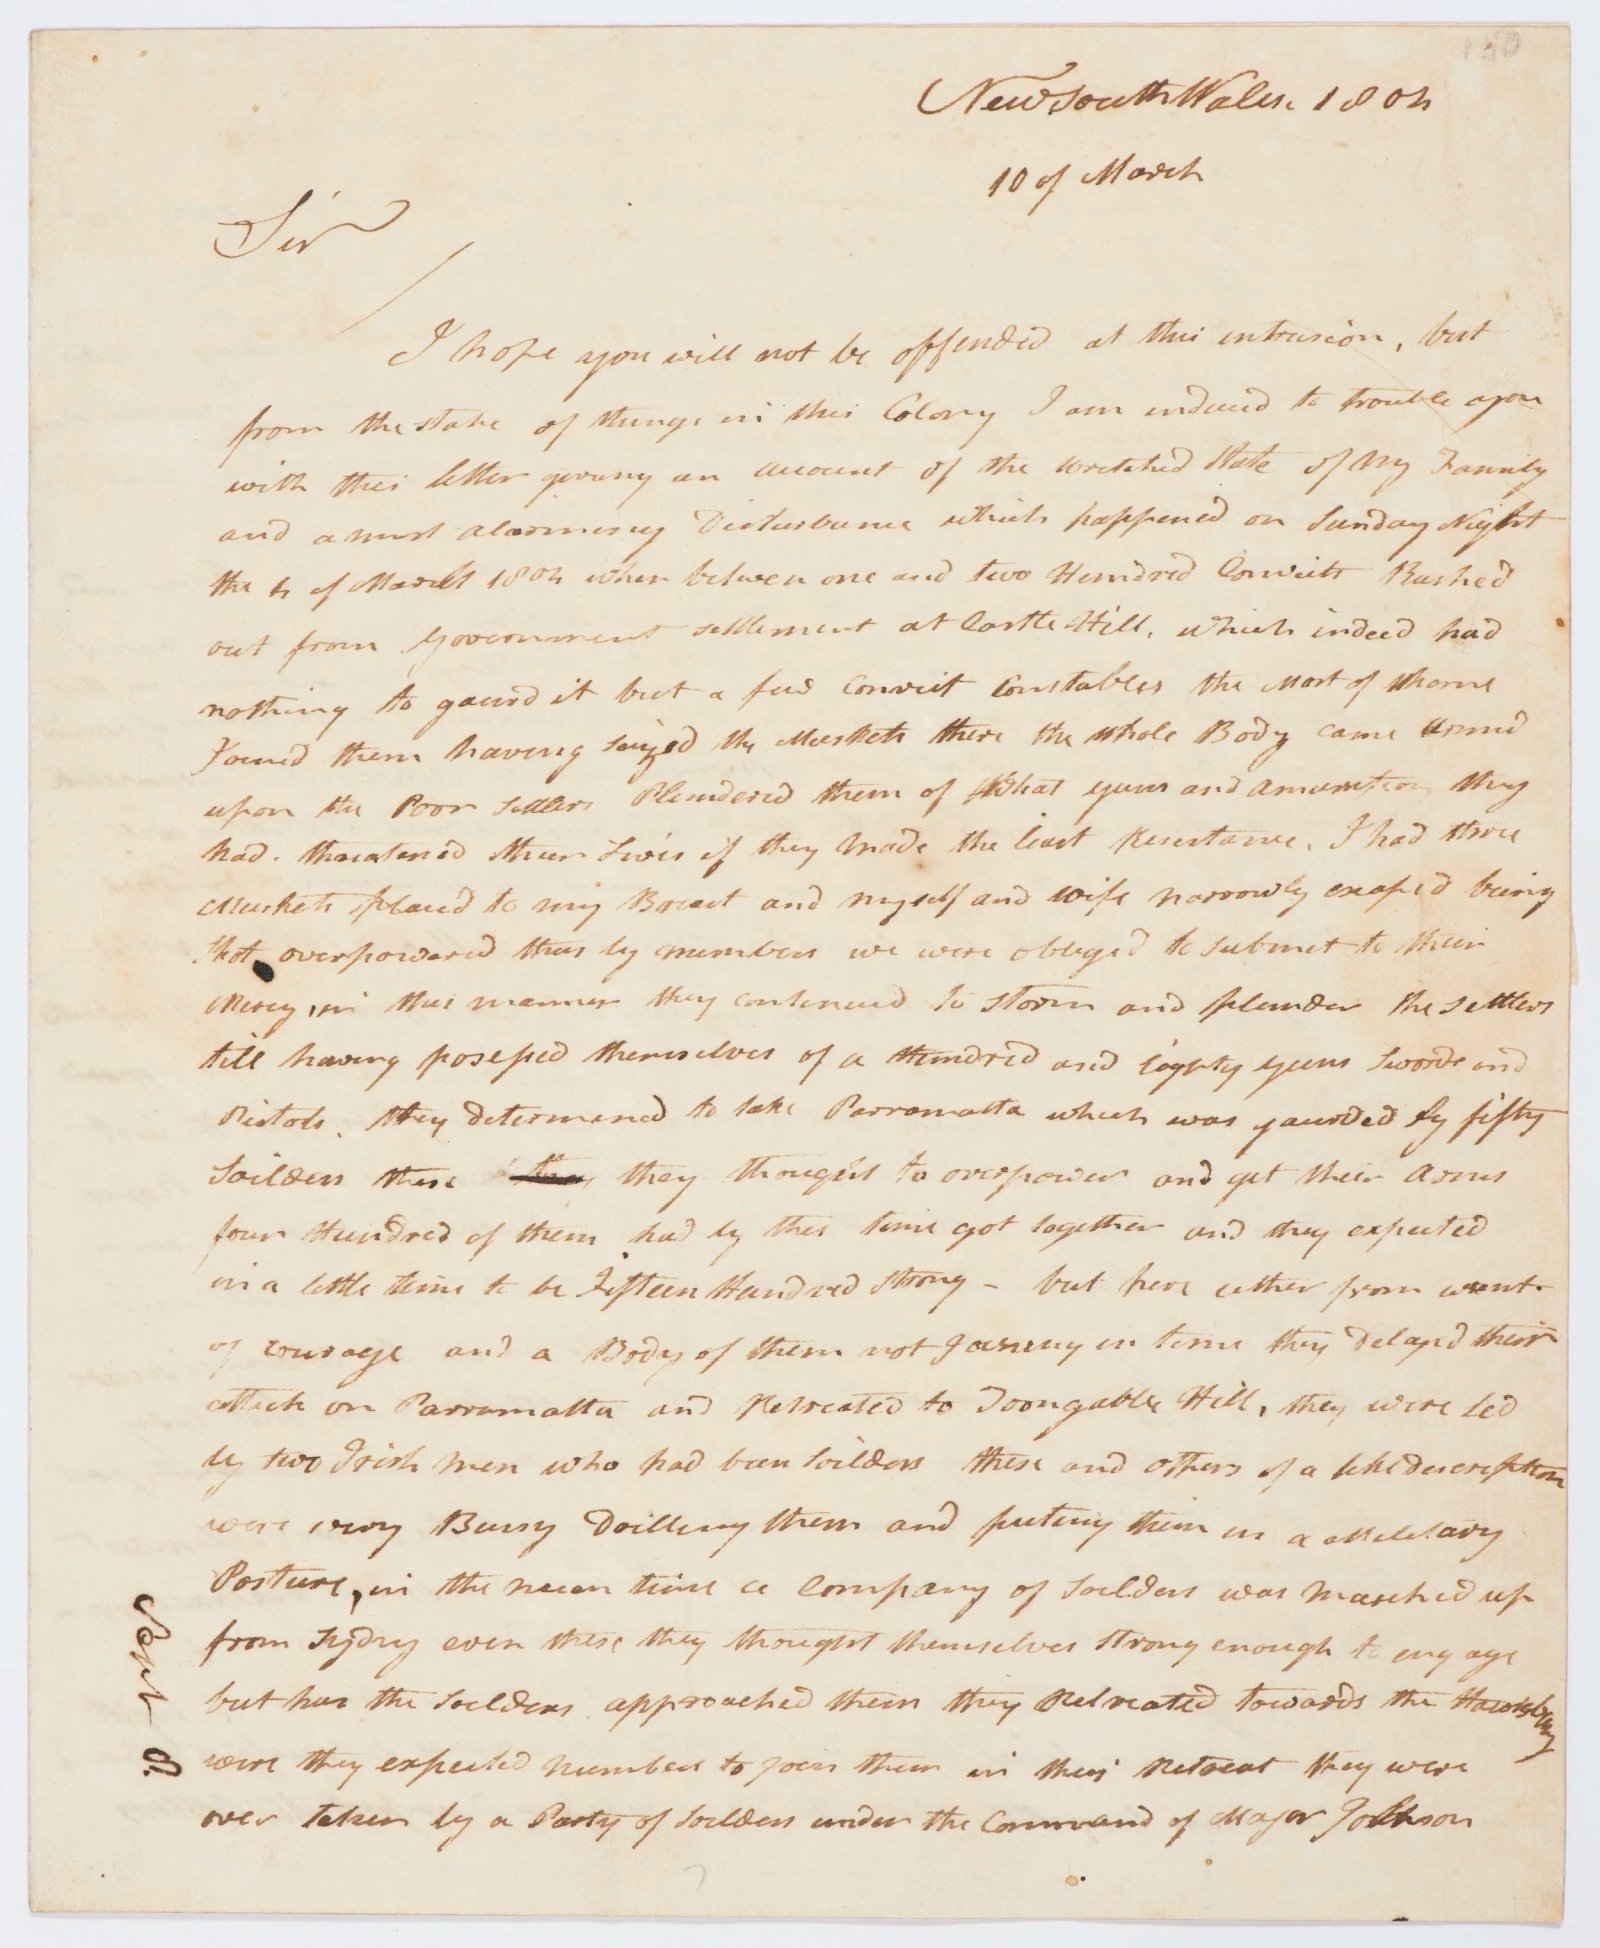 New South Wales 1804
10 of March
Sir
I hope you will not be offended at this intrusion, but
from the state of things in this Colony I am induced to trouble you
with this letter giveing an account of the wretched State of My Family
and a most alarming Disturbance which happened on Sunday Night
the 4 of March 1804 when between one and two Hundred Convicts Rushed
out from Government settlement at Castle Hill, which indeed had
nothing to gaurd it but a few Convict Constables the Most of whome
Joined them having seized the Muskets there the whole Body came Armed
upon the Poor Settlers Plundered them of What guns and Amunition they
had. threatened their Lives if they Made the least Resestance. I had three
Muskets placed to my Breast and myself and wife narrowly escaped being
Shot overpowered thus by numbers we were obleged to submet to their
Mercy, in this manner they continued to storm and plunder the settlers
till having possessed themselves of a Hundred and Eighty guns Swords and
Pistols. they determened to take Parramatta which was gaurded by fifty
Soilders these they thought to overpower and get their Arms
four Hundred of them had by this time got together and they expected
in a little time to be Fifteen Hundred Strong - but here either from want
of courage and a Body of them not Joining in time they Delayed their
attack on Parramatta and Retreated to Toongable Hill, they were Led
by two Irish Men who had been Soilders these and others of a like descreption
were very Bussy Drilling them and puting them in a Miletary
Posture, in the mean time a Company of Soilders was Marched up
from Sydny even these they thought themselves Strong enough to engage
but has the Soilders approached them they Retreated towards the Hawksbury
were they expected Numbers to join them in their Retreat they were
over taken by a Party of Soilders under the Command of Major Johnson